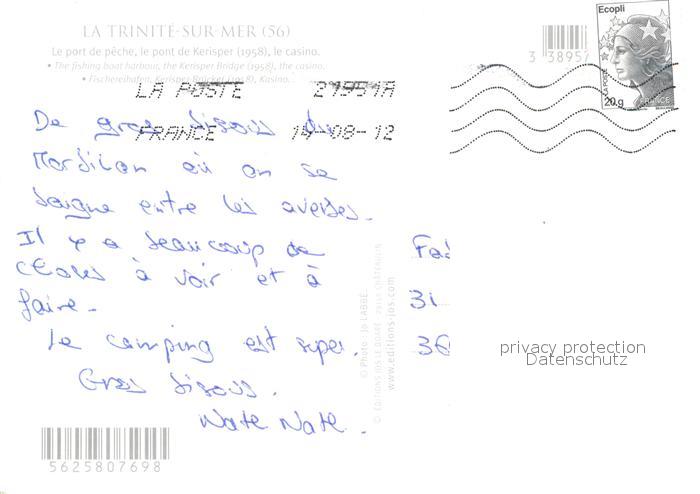 LA TRINITÉ-SUR-MER (56)
Le port de pêche, le pont de Kerisper (1958), le casino.
• The fishing boat harbour, the Kerisper Bridge (1958), the casino.
• Fischereihafen, Kerisper Brücker (1958), Kasino.
Ecopli
3 38957
LA POSTE
FRANCE
20g
LA POSTE 21951A
FRANCE 14-08-12
De gros bisous du
Morbihan où on se
baigne entre les averses.
Il y a beaucoup de
choses à voir et à
faire.
Le camping est super.
Gros bisous.
Nate Nate.
Fa
31
36
© Photo - Jo LABBÉ
© EDITIONS JOS LE DOARÉ - 29150 CHÂTEAULIN
www.editions-jos.com
privacy protection
Datenschutz
5625807698